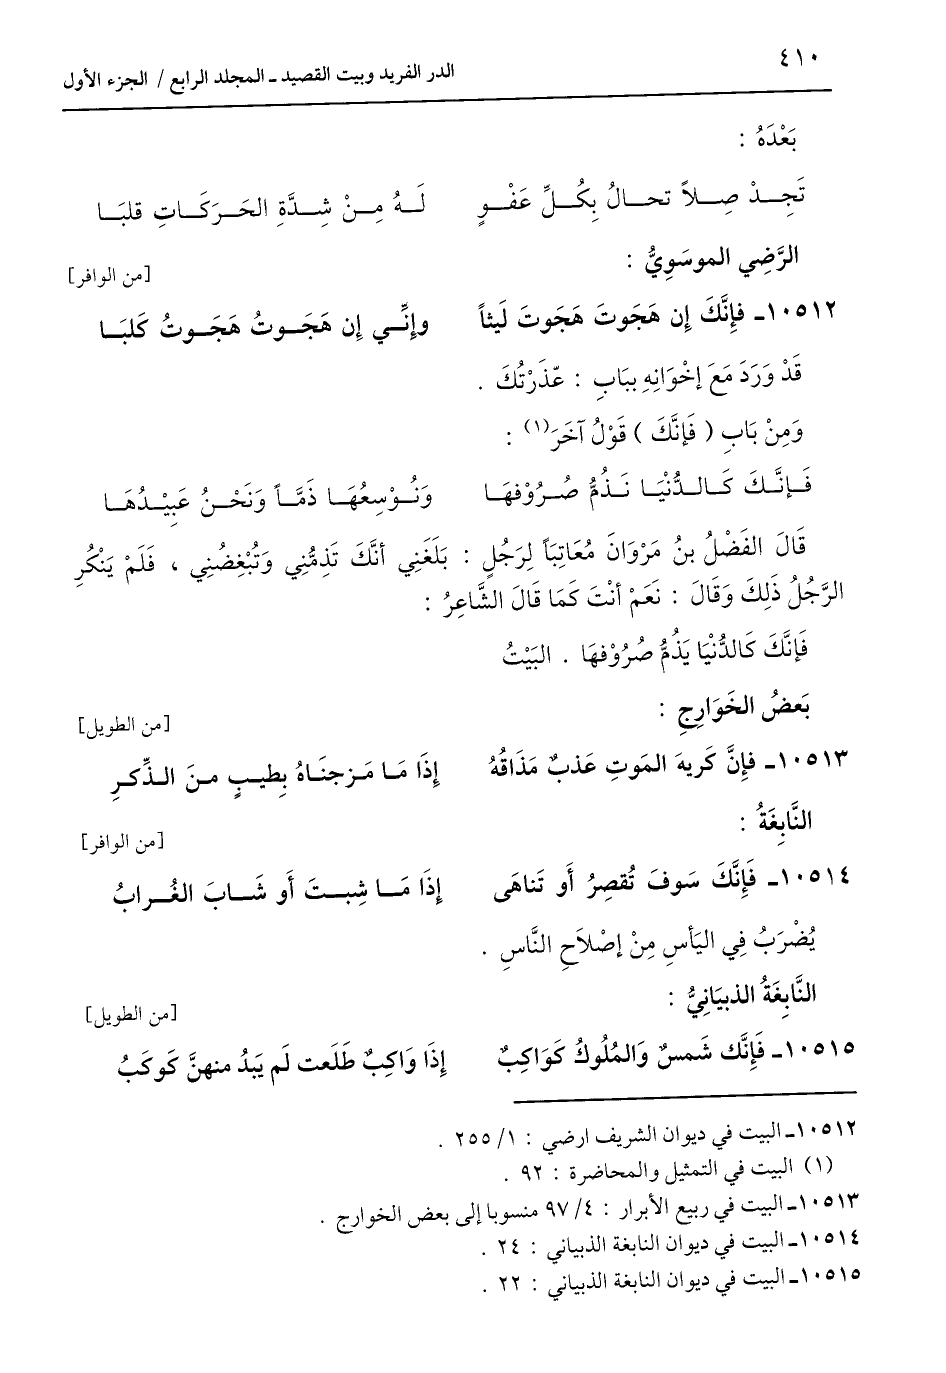 ٤١٠
الدر الفريد وبيت القصيد ـ المجلد الرابع / الجزء الأول
بَعْدَهُ :
تَجِدْ صِلاً تحالُ بِكُلِّ عَفْوٍ لَهُ مِنْ شِدَّةِ الحَرَكَاتِ قلبَا
الرَّضِي الموسَوِيُّ :
[من الوافر]
١٠٥١٢ـ فإِنَّكَ إن هَجَوتَ هَجَوتَ لَيثاً وإنِّي إن هَجَوتُ هَجَوتُ كَلبَا
قَدْ وَرَدَ مَعَ إخْوَانِهِ ببَابِ : عّذَرْتُكَ .
وَمِنْ بَابِ ( فَإنَّكَ ) قَوْلُ آخَرَ(١) :
فَإنَّكَ كَالدُّنْيَا نَذُمُّ صُرُوْفهَا وَنُوْسِعُهَا ذَمَّاً وَنَحْنُ عَبِيْدُهَا
قَالَ الفَضْلُ بنُ مَرْوَانَ مُعَاتِبَاً لِرَجُلٍ : بَلَغَنِي أنَّكَ تَذِمُّنِي وَتُبْغِضُنِي ، فَلَمْ يَنْكُرِ
الرَّجُلُ ذَلِكَ وَقَالَ : نَعَمْ أنْتَ كَمَا قَالَ الشَّاعِرُ :
فَإنَّكَ كَالدُّنْيَا يَذُمُّ صُرُوْفهَا . البَيْتُ
بَعضُ الخَوَارِجِ :
[من الطويل]
١٠٥١٣ـ فإنَّ كَريهَ الموتِ عَذبٌ مَذَاقُهُ إذَا مَا مَزجنَاهُ بِطيبٍ منَ الذِّكرِ
النَّابِغَةُ :
[من الوافر]
١٠٥١٤ـ فَإِنَّكَ سَوفَ تُقصِرُ أو تَناهَى إذَا مَا شِبتَ أو شَابَ الغُرابُ
يُضْرَبُ فِي اليَأسِ مِنْ إصْلاَحِ النَّاسِ .
النَّابِغَةُ الذبيَانِيُّ :
[من الطويل]
١٠٥١٥ـ فَإِنَّك شَمسٌ وَالمُلُوكُ كَوَاكِبٌ إذَا وَاكِبٌ طَلَعت لَم يَبدُ منهنَّ كَوكَبُ
١٠٥١٢ـ البيت في ديوان الشريف ارضي : ١/ ٢٥٥ .
(١) البيت في التمثيل والمحاضرة : ٩٢ .
١٠٥١٣ـ البيت في ربيع الأبرار : ٤/ ٩٧ منسوبا إلى بعض الخوارج .
١٠٥١٤ـ البيت في ديوان النابغة الذبياني : ٢٤ .
١٠٥١٥ـ البيت في ديوان النابغة الذبياني : ٢٢ .